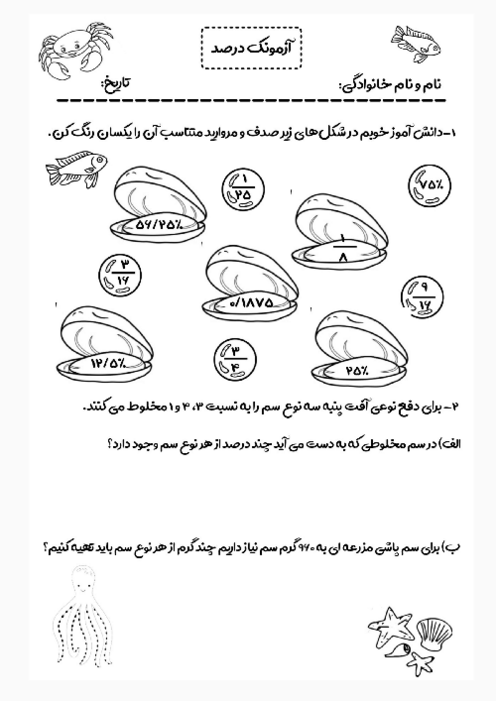 آزمونک درصد
نام و نام خانوادگی:
تاریخ:
۱-دانش آموز خوبم در شکل های زیر صدف و مروارید متناسب آن را یکسان رنگ کن.
۱/۲۵
۷۵٪
۵۶/۲۵٪
۱/۸
۳/۱۶
۰/۱۸۷۵
۹/۱۶
۱۲/۵٪
۳/۴
۲۵٪
۲- برای دفع نوعی آفت پنبه سه نوع سم را به نسبت ۳، ۴ و ۱ مخلوط می کنند.
الف) در سم مخلوطی که به دست می آید چند درصد از هر نوع سم وجود دارد؟
ب) برای سم پاشی مزرعه ای به ۹۶۰ گرم سم نیاز داریم چند گرم از هر نوع سم باید تهیه کنیم؟